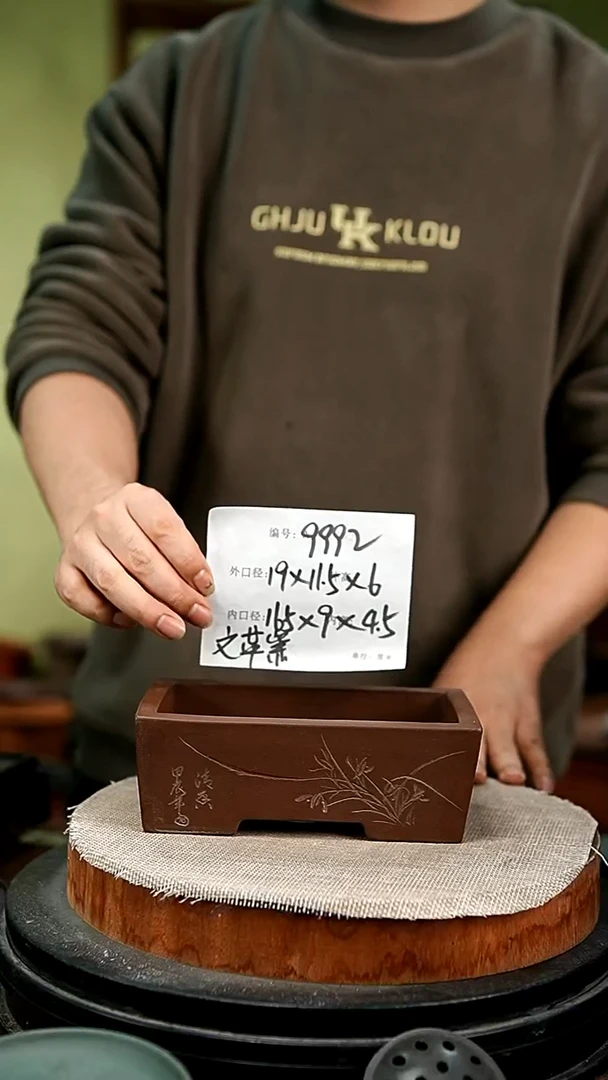 GHJU UK KLOU
编号: 9992
外口径: 19×11.5×6
内口径: 16.5×9×4.5
文革紫
清香
甲辰年